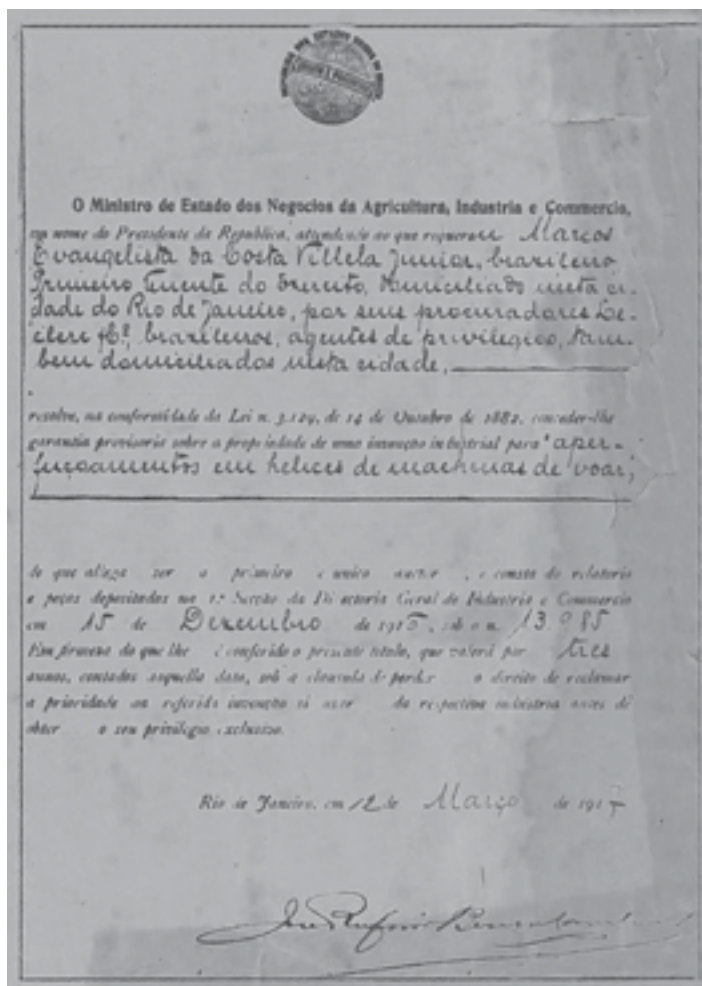 O Ministro de Estado dos Negocios da Agricultura, Industria e Commercio,
em nome do Presidente da Republica, attendendo ao que requereu Marcos
Evangelista da Costa Villela Junior, brazileiro
Primeiro Tenente do Exercito, domiciliado nesta ci-
dade do Rio de Janeiro, por seus procuradores Le-
clerc & Cª, brazileiros, agentes de privilegios, tam-
bem domiciliados nesta cidade,
resolve, na conformidade da Lei n. 3.129, de 14 de Outubro de 1882, conceder-lhe
garantia provisoria sobre a propriedade de uma invenção industrial para "aper-
feiçoamentos em helices de machinas de voar,
de que allega ser o primeiro e unico auctor, e consta do relatorio
e peças depositadas na 1ª Secção da Directoria Geral de Industria e Commercio
em 15 de Dezembro de sob o n.
Em firmeza do que lhe é conferido o presente titulo, que valerá por tres
annos, contados daquella data, sob a clausula de perder o direito de reclamar
a prioridade da referida invenção si usar da respectiva industria antes de
obter o seu privilegio exclusivo.
Rio de Janeiro, em 12 de Março de 1917
José Rufino